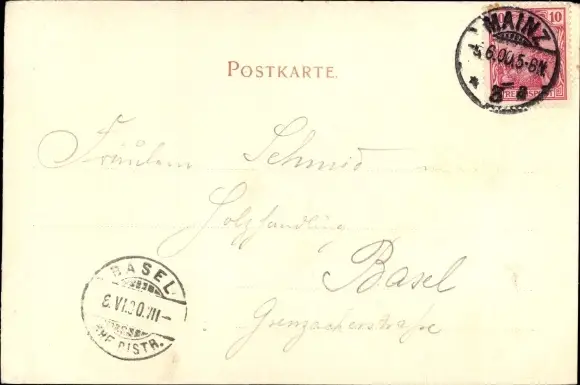 MAINZ
5.6.00.5-6N.
* 3 a
10
REICHSPOST
POSTKARTE.
Fräulein Schmid
Holzhandlung
Basel
Grenzacherstraße
BASEL
6.VI.00.VII-
BRF.DISTR.